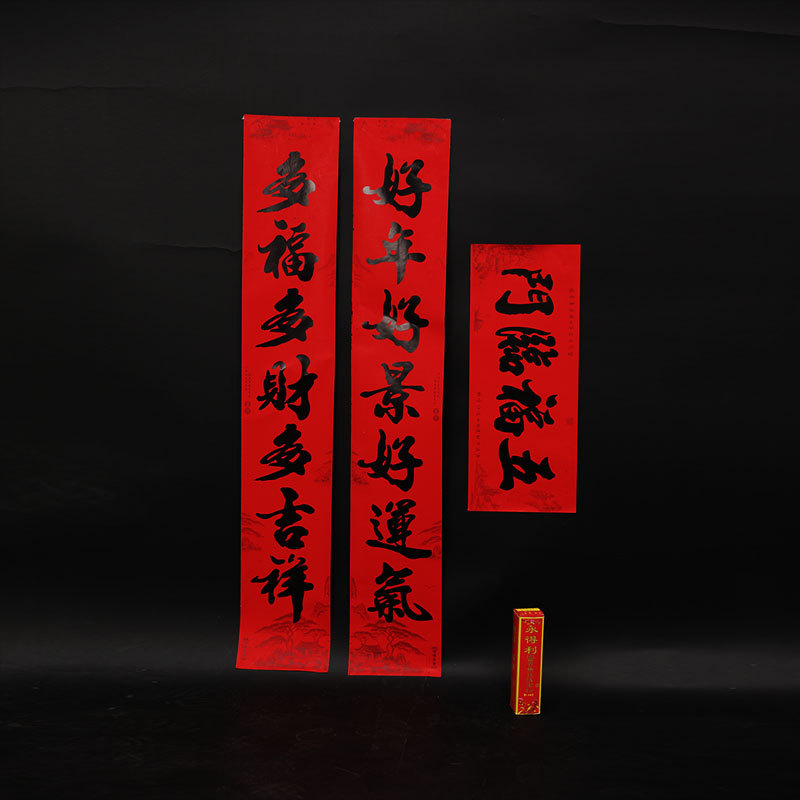 好年好景好運氣
多福多財多吉祥
五福臨門
永得利